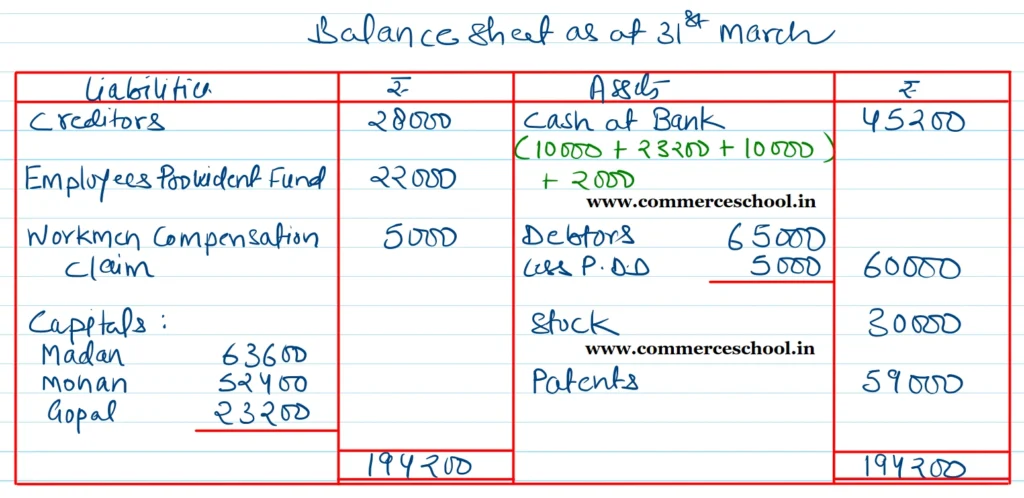 Balance Sheet as at 31st March
Liabilities ₹ Assets ₹
Creditors 28000 Cash at Bank 45200
(10000 + 23200 + 10000)
Employees Provident Fund 22000 + 2000
www.commerceschool.in
Workmen Compensation 5000 Debtors 65000
Claim Less P.D.D 5000 60000
Capitals : Stock 30000
Madan 63600 www.commerceschool.in
Mohan 52400 Patents 59000
Gopal 23200
194200 194200